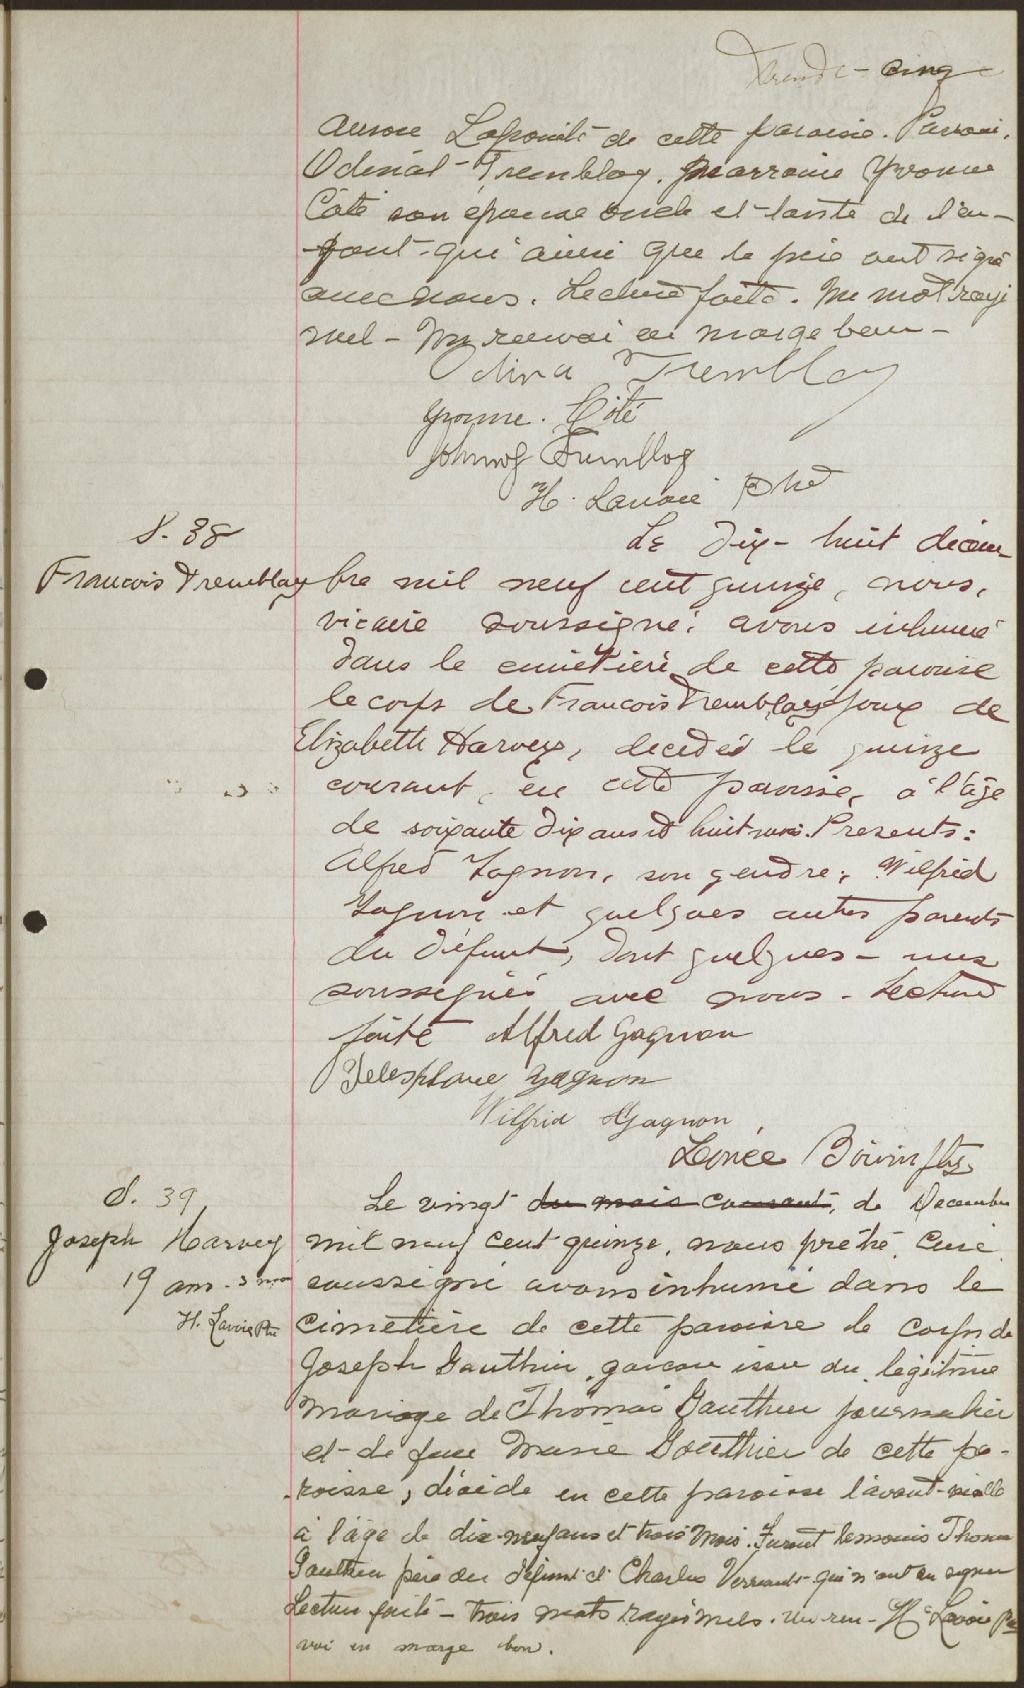 Trente-cinq
Aurore Lapointe de cette paroisse. Parrain,
Odinat Tremblay, marraine Yvonne
Côté son épouse oncle et tante de l'en-
-fant qui ainsi que le père ont signé
avec nous. Lecture faite. Un mot rayé
nul - Un renvoi en marge bon -
Odina Tremblay
Yvonne. Côté
Johnny Tremblay
H. Lavoie Ptre
S. 38
Francois Tremblay
Le dix-huit décem
bre mil neuf cent quinze, nous,
vicaire soussigné, avons inhumé
dans le cimetière de cette paroisse
le corps de Francois Tremblay époux de
Elizabeth Harvey, décédé le quinze
courant, en cette paroisse, à l'âge
de soixante dix ans et huit mois. Presents:
Alfred Gagnon, son gendre, Wilfrid
Gagnon et quelques autres parents
du défunt, dont quelques-uns
soussignés avec nous - Lecture
faite Alfred Gagnon
Télesphore Gagnon
Wilfrid Gagnon
Boivin ptre
S. 39
Joseph Harvey
19 ans. 3 mois
H. Lavoie Ptre
Le vingt du mois courant, de Decembre
mil neuf cent quinze, nous prêtre Curé
soussigné avons inhumé dans le
cimetière de cette paroisse le corps de
Joseph Gauthier, garçon issu du légitime
mariage de Thomas Gauthier journalier
et de feue Marie Gauthier de cette pa-
roisse, décédé en cette paroisse l'avant-veille
à l'âge de dix-neuf ans et trois mois. Furent témoins Thomas
Gauthier père du défunt et Charles qui n'ont su signer
Lecture faite - trois mots rayés nuls. Un ren- H Lavoie Ptre
voi en marge bon.